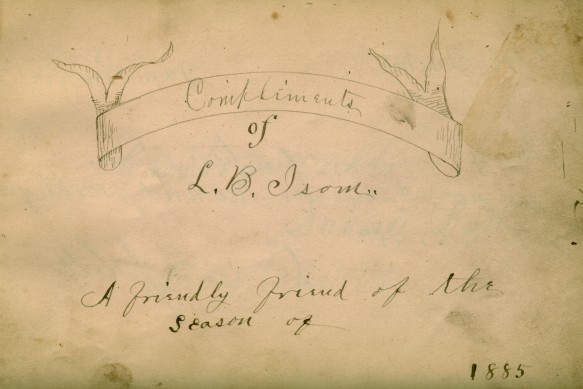 Compliments
of
L. B. Isom..
A friendly friend of the
season of
1885